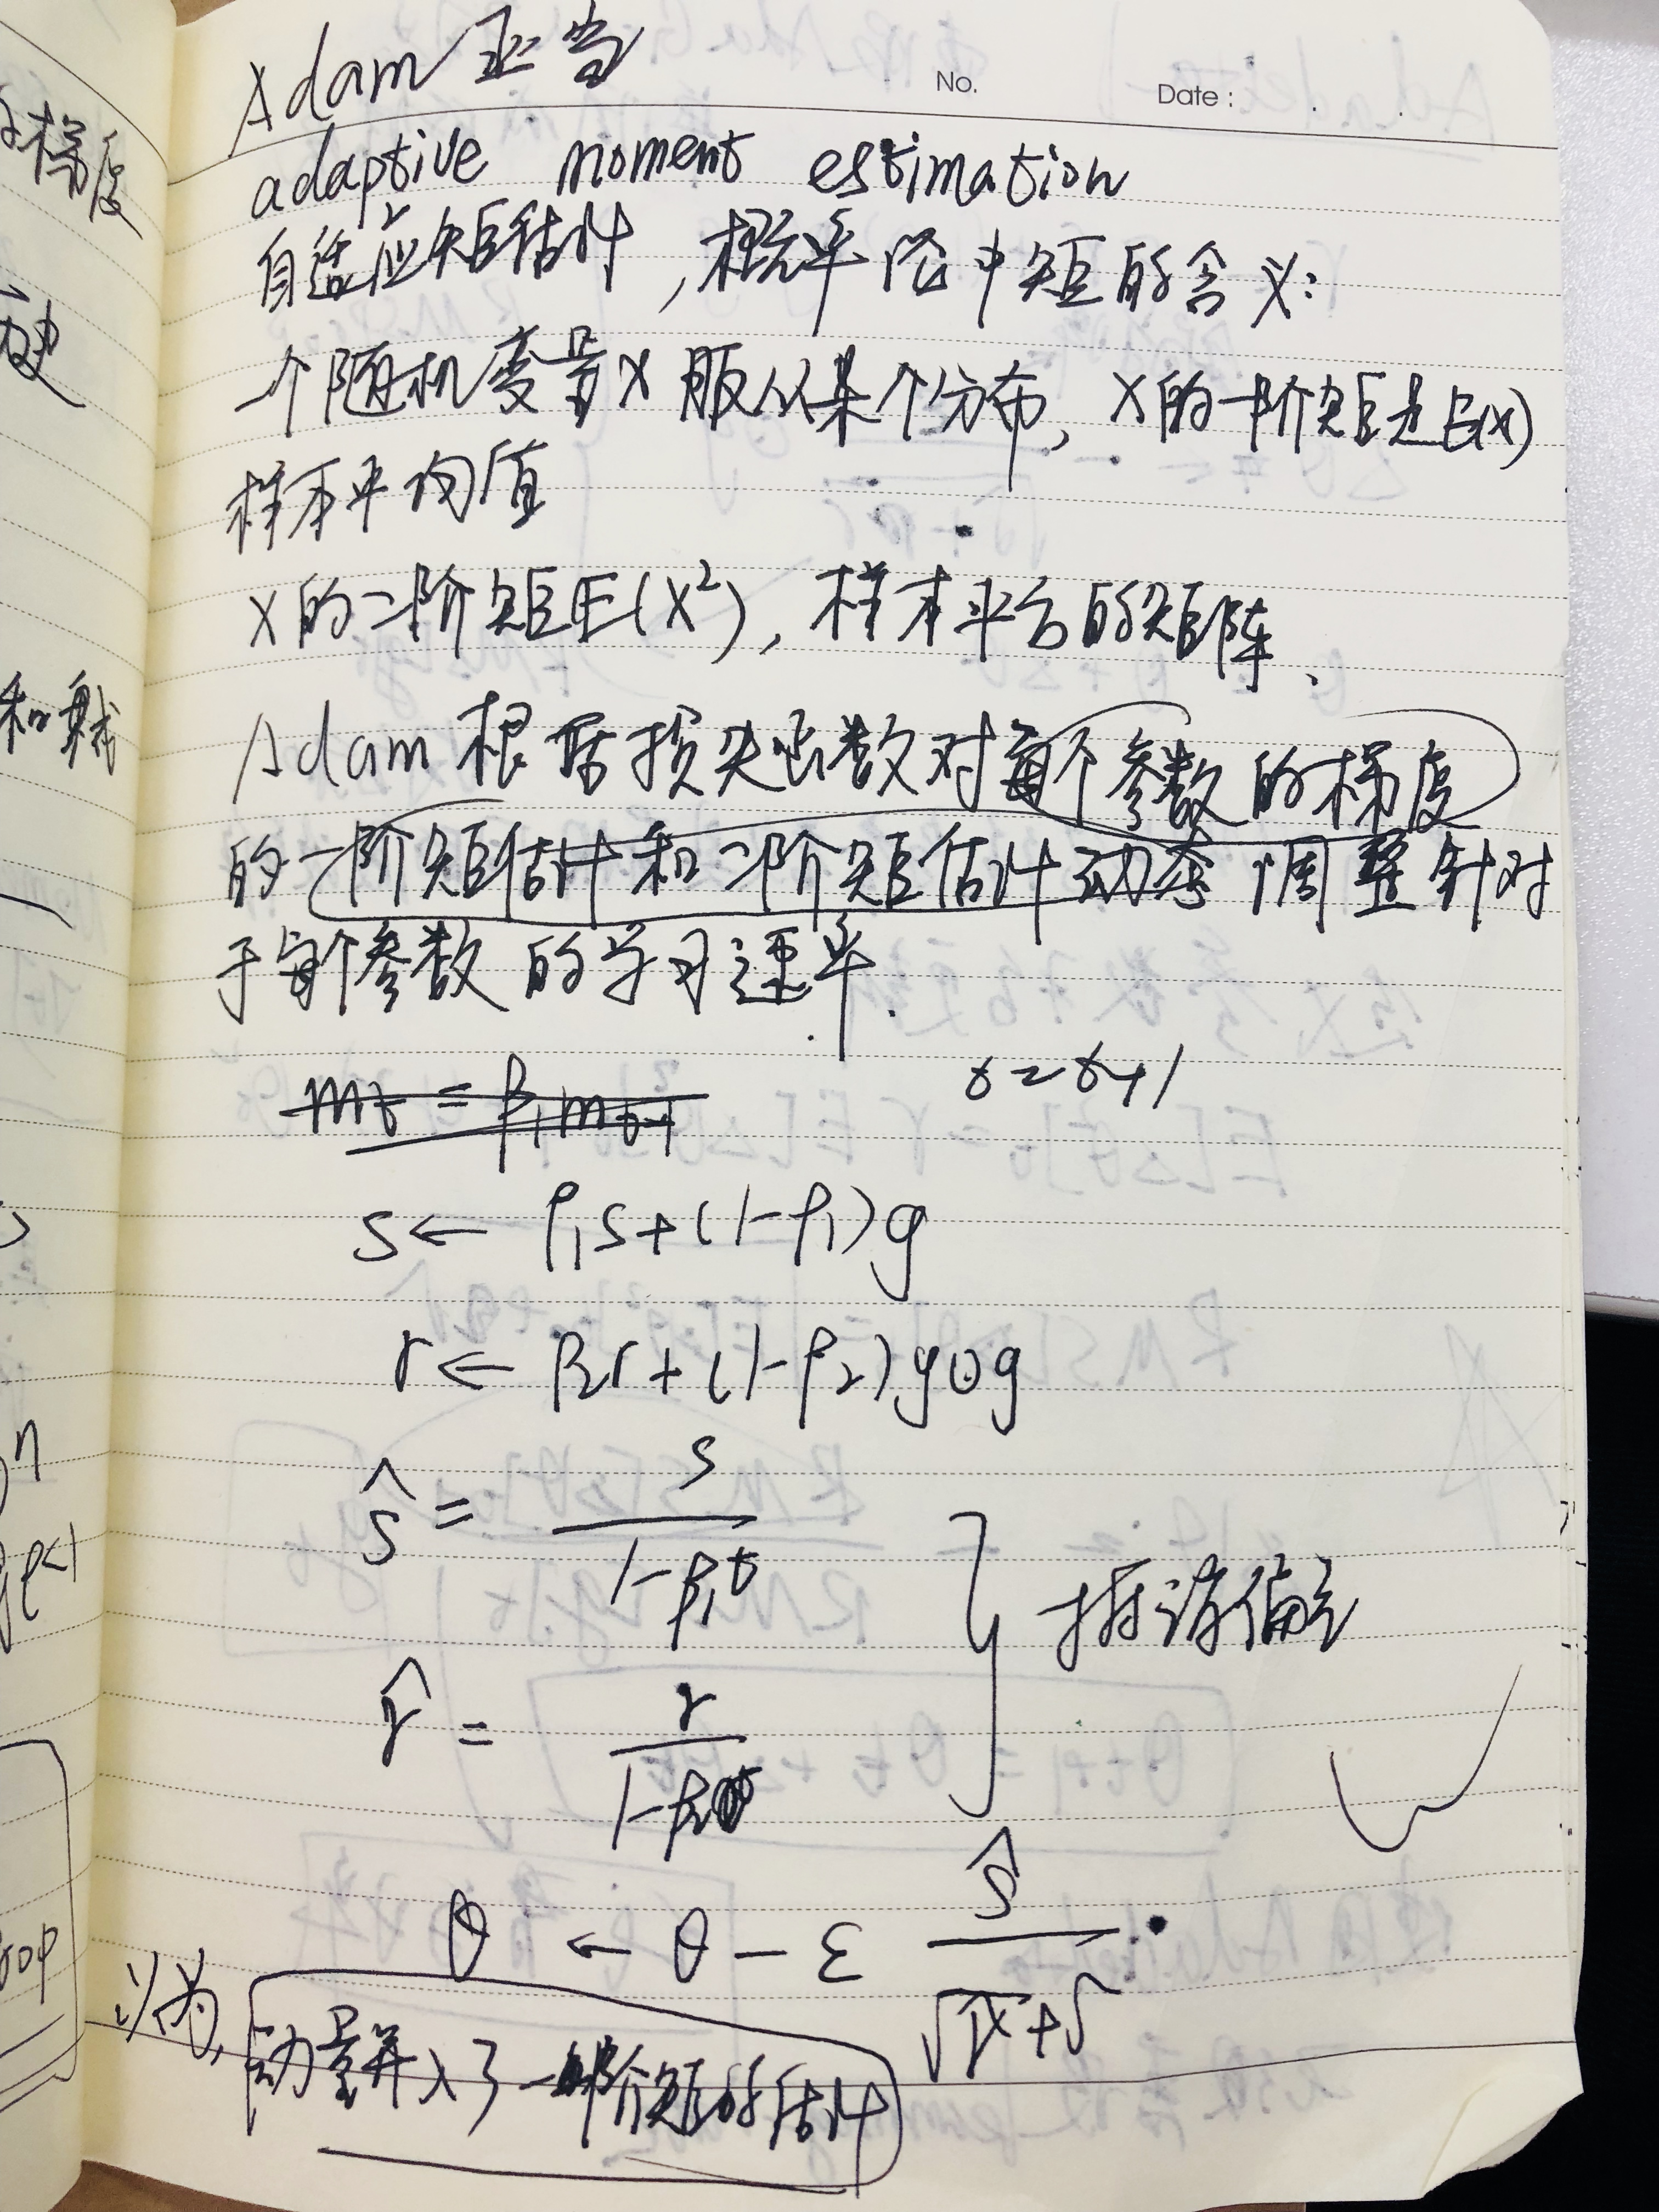 Adam 亚当
No. Date:
adaptive moment estimation
自适应矩估计，概率论中矩的含义：
一个随机变量X 服从某个分布，X的一阶矩是E(X)
样本平均值
X的二阶矩E(X²)，样本平方的矩阵、
Adam 根据损失函数对每个参数的梯度
的一阶矩估计和二阶矩估计动态调整针对
于每个参数的学习速率.
mt = β1mt-1
t=t+1
s← ρ1s+(1-ρ1)g
r← ρ2r+(1-ρ2)g⊙g
ŝ = s / 1-ρ1t
r̂ = r / 1-ρ2t
偏差
θ ← θ - ε ŝ / √r̂+δ
以为，动量并入了一阶矩的估计
梯度
和
ρ<1